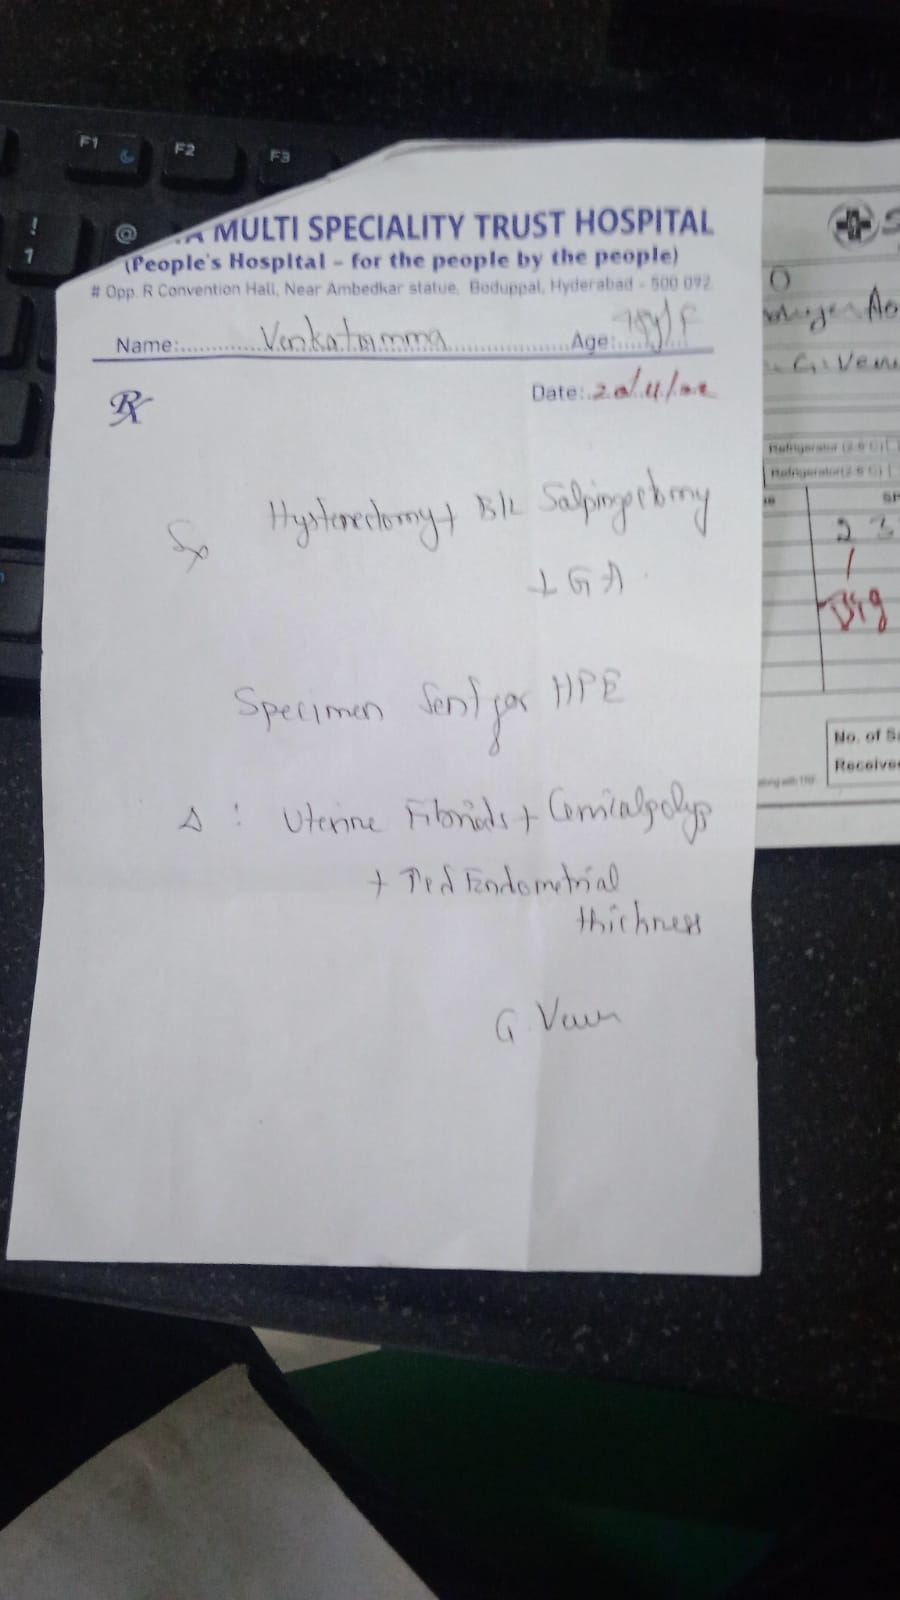 F1 F2 F3
! 1 @
A MULTI SPECIALITY TRUST HOSPITAL
(People's Hospital - for the people by the people)
# Opp. R Convention Hall, Near Ambedkar statue, Boduppal, Hyderabad - 500 092
Name:.............Venkatamma....................Age:
Rx
Date:
Hysterectomy + B/L Salpingectomy
GA
Specimen Sent for HPE
Δ : Uterine Fibroids + Cervical polyp
+ Endometrial
thickness
G
Refrigerator (2-8°C)
Refrigerator(2-8°C)
2 3
1
Big
No. of